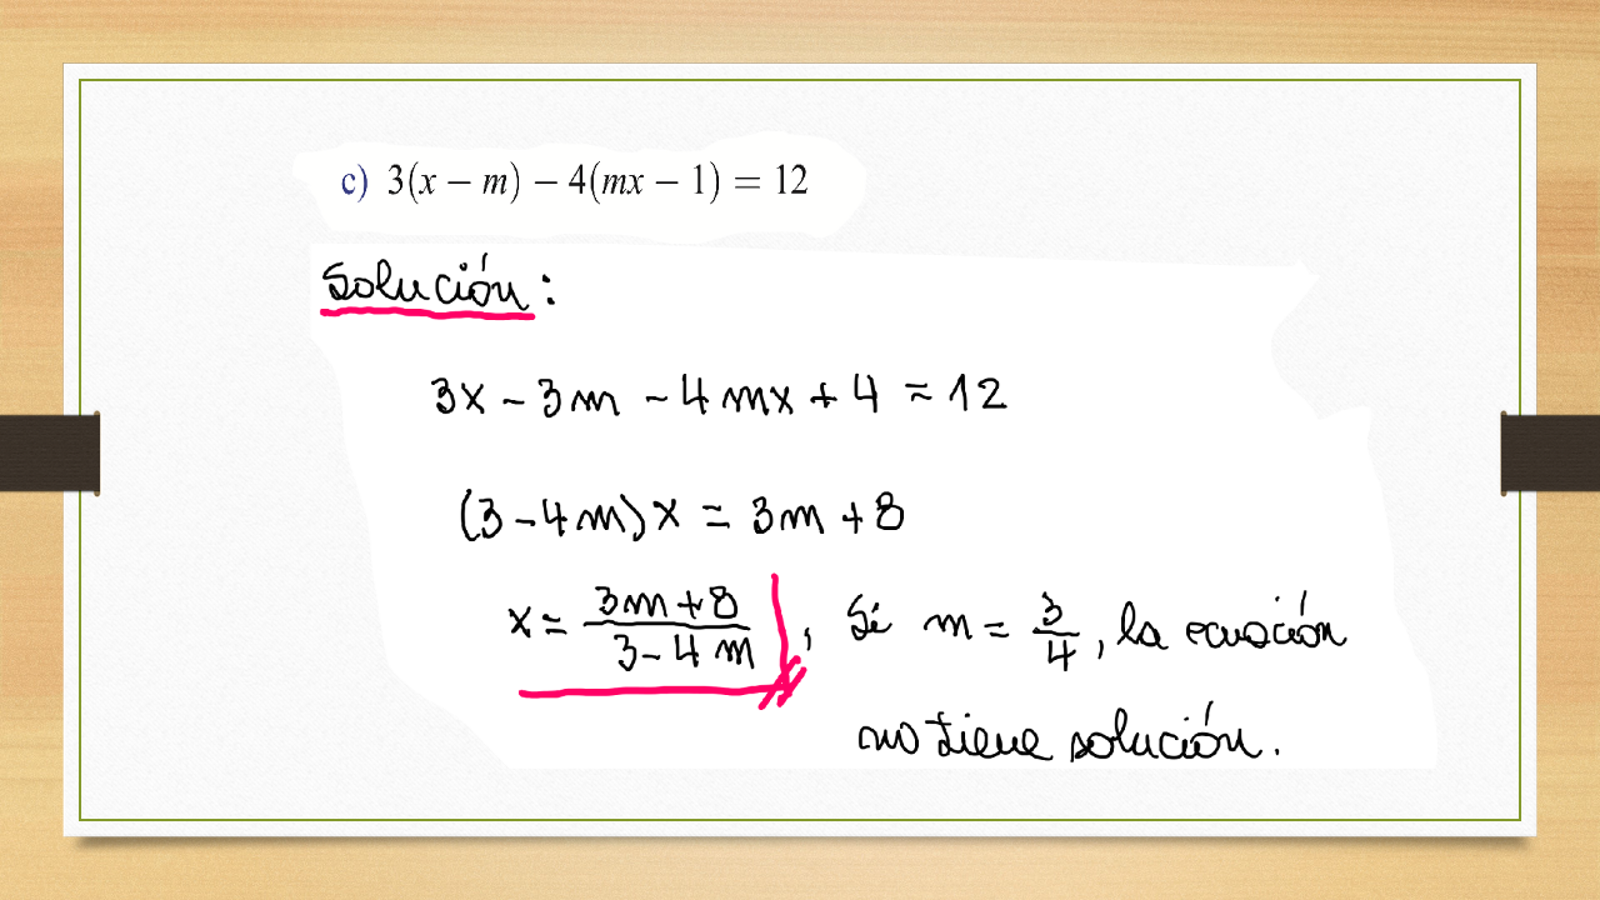 c) 3(x − m) − 4(mx − 1) = 12
Solución:
3x − 3m − 4mx + 4 = 12
(3 − 4m)x = 3m + 8
x = \frac{3m+8}{3-4m}, Si m = \frac{3}{4}, la ecuación
no tiene solución.